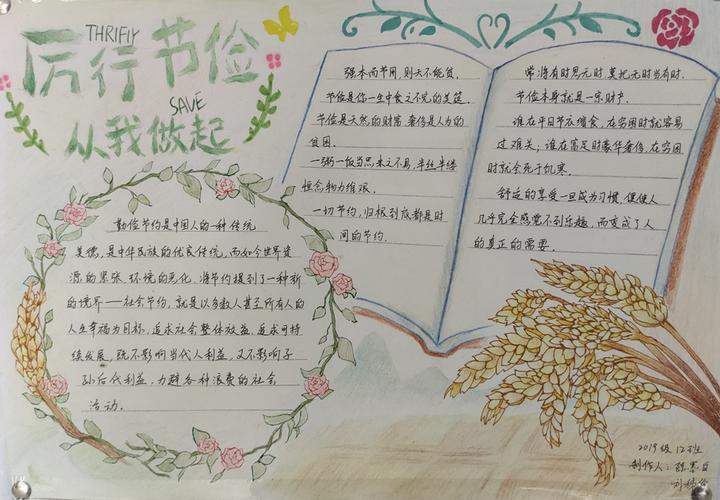 THRIFIY
厉行节俭
SAVE
从我做起
勤俭节约是中国人的一种传统
美德,是中华民族的优良传统,而如今世界资
源的紧张、环境的恶化,将节约提到了一种新
的境界——社会节约,就是以多数人甚至所有人的
人生幸福为目标,追求社会整体效益,追求可持
续发展,既不影响当代人利益,又不影响子
孙后代利益,力辟各种浪费的社会
活动.
强本而节用,则天不能贫.
节俭是你一生中食之不完的美筵.
节俭是天然的财富,奢侈是人为的
贫困.
一粥一饭当思来之不易,半丝半缕
恒念物力维艰.
一切节约,归根到底都是时
间的节约.
常将有时思无时,莫把无时当有时.
节俭本身就是一宗财产.
谁在平日节衣缩食,在穷困时就容易
过难关;谁在富足时豪华奢侈,在穷困
时就会死于饥寒.
舒适的享受一旦成为习惯,便使人
几乎完全感觉不到乐趣,而变成了人
的真正的需要.
2019级12班
制作人: